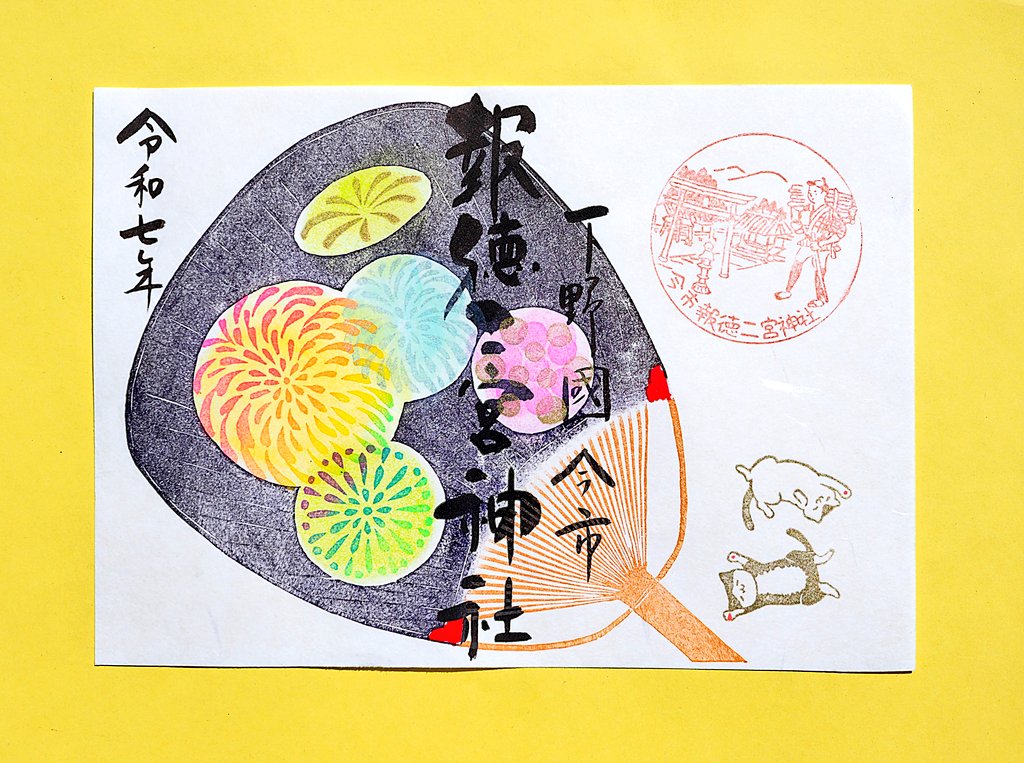 下野國今市
報徳二宮神社
令和七年
今市報徳二宮神社